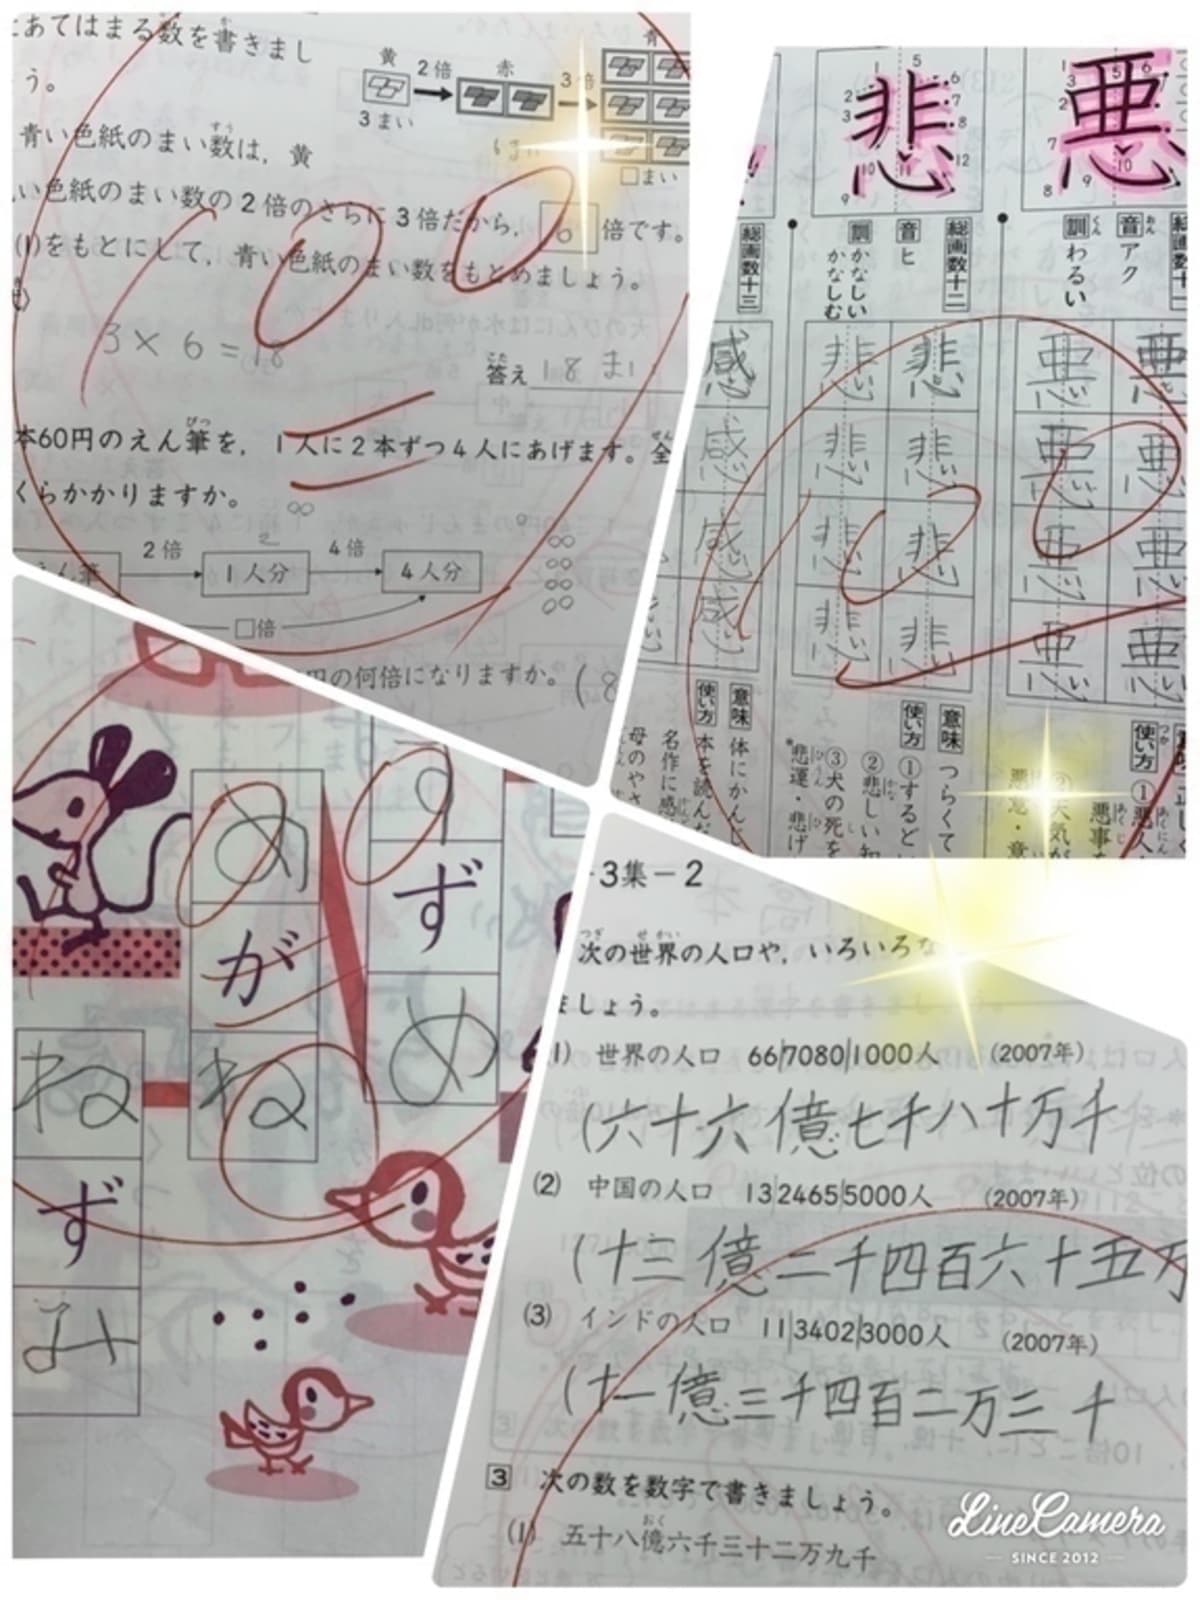 にあてはまる数を書きまし
う。
黄
2倍
赤
3倍
青
3まい
□まい
青い色紙のまい数は，黄
い色紙のまい数の2倍のさらに3倍だから，6倍です。
(1)をもとにして，青い色紙のまい数をもとめましょう。
3×6=18
答え 18まい
本60円のえん筆を，1人に2本ずつ4人にあげます。全
くらかかりますか。
2倍
4倍
えん筆
1人分
4人分
□倍
円の何倍になりますか。(8
100
悪
総画数十一
音 アク
訓 わるい
悪
悲
総画数十二
音 ヒ
訓 かなしい
かなしむ
悲
意味 つらくて
使い方 ①するど
②悲しい知
③犬の死を
*悲運・悲げ
総画数十三
感
意味 体にかんじ
使い方 本を読んだ
名作に感
母のやさ
使い方 ①悪人
悪事
②天気が
100
めがね
すずめ
ねずみ
3集－2
次の世界の人口や，いろいろな
ましょう。
(1) 世界の人口 66|7080|1000人 (2007年)
(六十六億七千八十万千
(2) 中国の人口 13|2465|5000人 (2007年)
(十三億二千四百六十五万
(3) インドの人口 11|3402|3000人 (2007年)
(十一億三千四百二万三千
3 次の数を数字で書きましょう。
(1) 五十八億六千三十二万九千
LineCamera
SINCE 2012